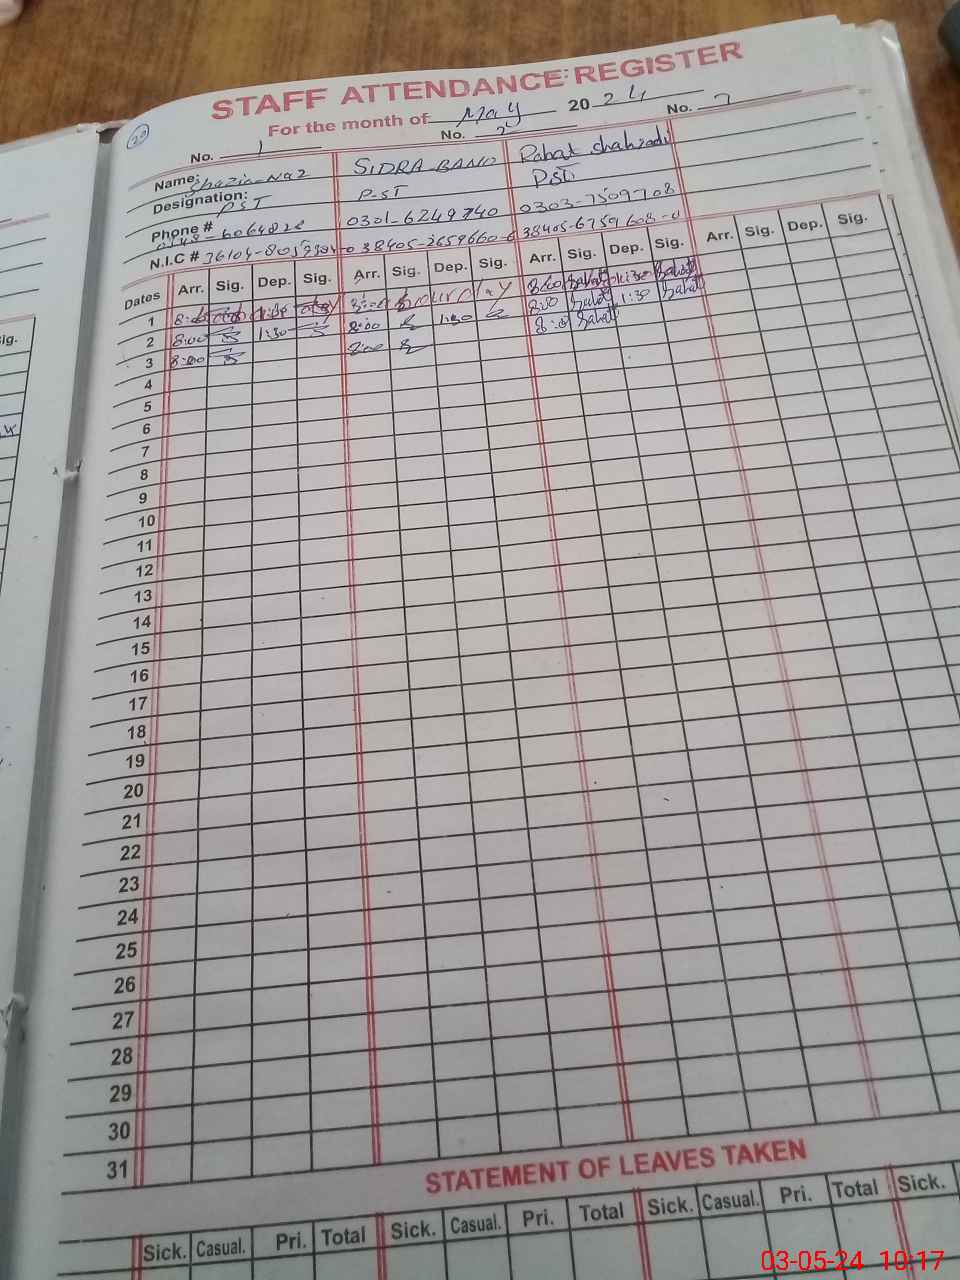 STAFF ATTENDANCE REGISTER
For the month of May 2024
20
No. 1 No. 2 No. 3
Name: Shazia Naz SIDRA BANO Rahat shahzadi
Designation: PST PST PST
Phone # 0301-6249740 0303-7509708
N.I.C # 38405-2659660-6 38405-6759608-0
Dates Arr. Sig. Dep. Sig. Arr. Sig. Dep. Sig. Arr. Sig. Dep. Sig. Arr. Sig. Dep. Sig.
1 8:00 Rahat
2 8:00 1:30 8:00 1:30 8:0 Rahat 1:30 Rahat
3 8:00 8:00 8:0 Rahat
4
5
6
7
8
9
10
11
12
13
14
15
16
17
18
19
20
21
22
23
24
25
26
27
28
29
30
31
STATEMENT OF LEAVES TAKEN
Sick. Casual. Pri. Total Sick. Casual. Pri. Total Sick. Casual. Pri. Total Sick.
03-05-24 10:17
ig.